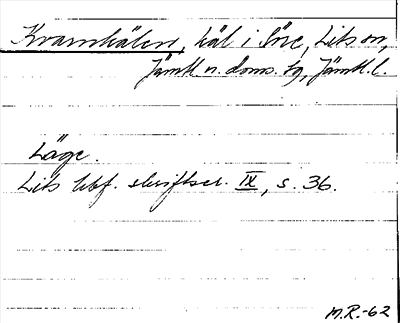 Kvarnkälen, käl i Söre, Lits sn,
Jämtl. n. doms. tg, Jämtl. l.
Läge.
Lits hbf. skriftser. IX, s. 36.
M.R.-62